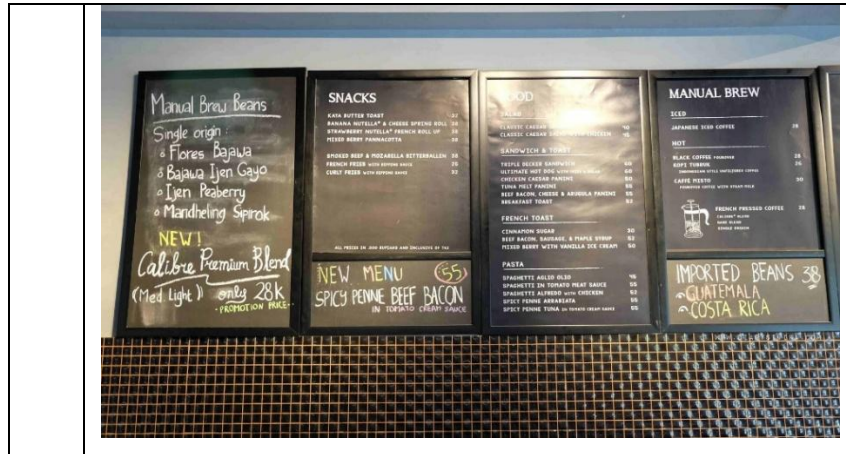 Manual Brew Beans
Single origin :
Flores Bajawa
Bajawa Ijen Gayo
Ijen Peaberry
Mandheling Sipirok
NEW!
Calibre Premium Blend
(Med. Light) only 28K
- PROMOTION PRICE -
SNACKS
KAYA BUTTER TOAST
BANANA NUTELLA® & CHEESE SPRING ROLL
STRAWBERRY NUTELLA® FRENCH ROLL UP
MIXED BERRY PANNACOTTA
SMOKED BEEF & MOZARELLA BITTERBALLEN
FRENCH FRIES WITH DIPPING SAUCE
CURLY FRIES WITH DIPPING SAUCE
ALL PRICES IN '000 RUPIAHS AND INCLUSIVE OF TAX
NEW MENU 55
SPICY PENNE BEEF BACON
IN TOMATO CREAM SAUCE
FOOD
SALAD
CLASSIC CAESAR
CLASSIC CAESAR SALAD WITH CHICKEN
SANDWICH & TOAST
TRIPLE DECKER SANDWICH
ULTIMATE HOT DOG
CHICKEN CAESAR PANINI
TUNA MELT PANINI 55
BEEF BACON, CHEESE & ARUGULA PANINI 55
BREAKFAST TOAST 52
FRENCH TOAST
CINNAMON SUGAR 30
BEEF BACON, SAUSAGE, & MAPLE SYRUP 52
MIXED BERRY WITH VANILLA ICE CREAM 50
PASTA
SPAGHETTI AGLIO OLIO
SPAGHETTI IN TOMATO MEAT SAUCE 55
SPAGHETTI ALFREDO WITH CHICKEN 52
SPICY PENNE ARRABIATA 55
SPICY PENNE TUNA IN TOMATO CREAM SAUCE 55
MANUAL BREW
ICED
JAPANESE ICED COFFEE
HOT
BLACK COFFEE POUROVER
KOPI TUBRUK
INDONESIAN STYLE UNFILTERED COFFEE
CAFFÉ MISTO 30
POUROVER COFFEE WITH STEAM MILK
FRENCH PRESSED COFFEE
CALIBRE' BLEND
DARK BLEND
SINGLE ORIGIN
IMPORTED BEANS 38
GUATEMALA
COSTA RICA